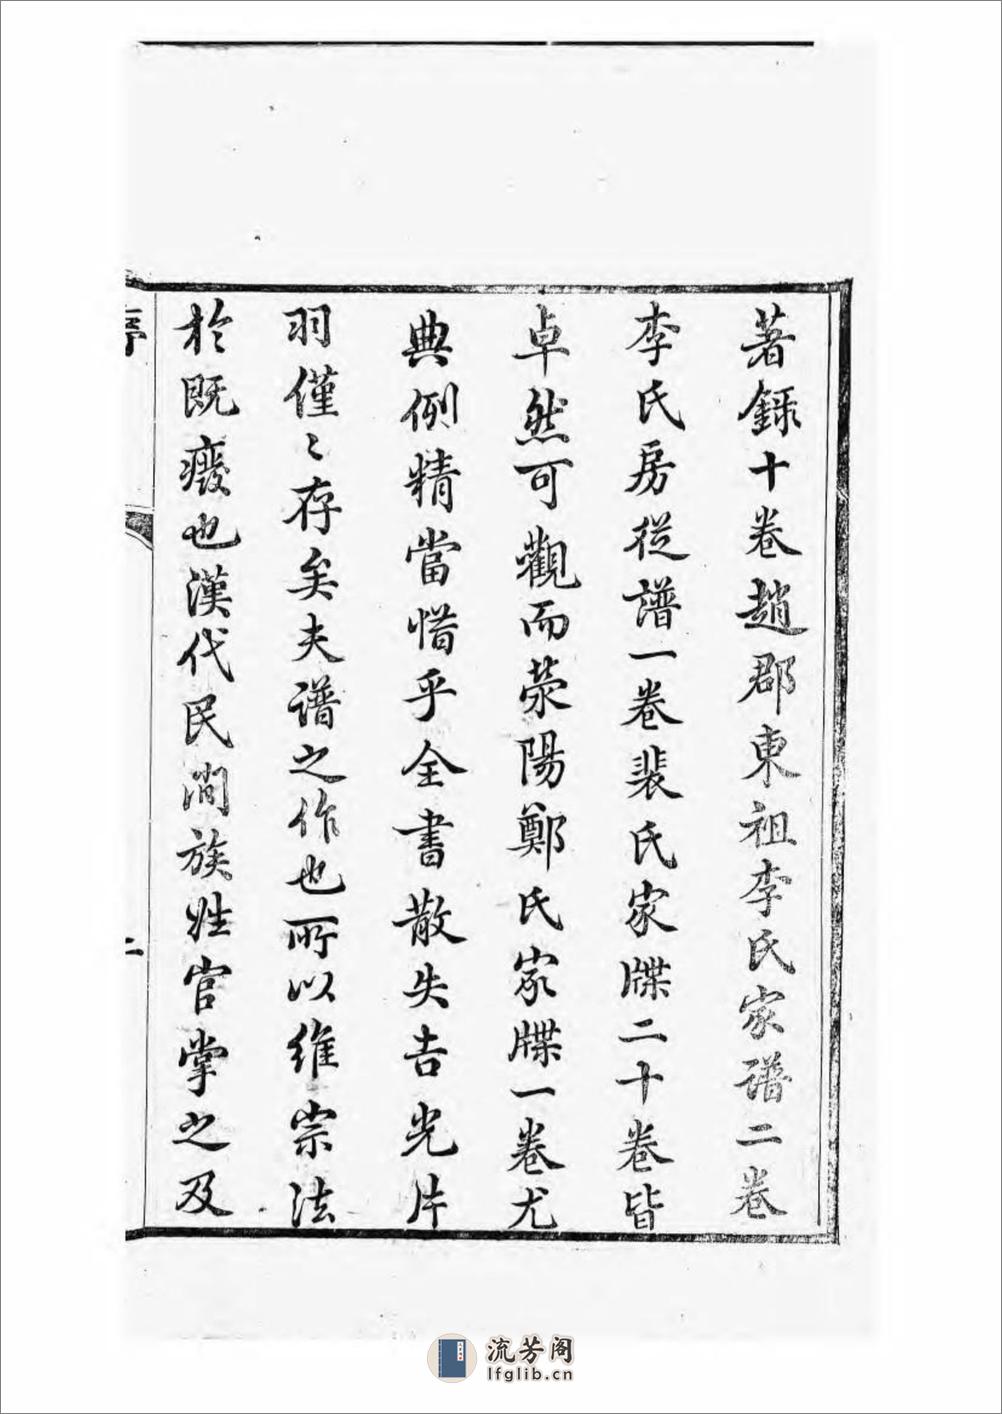 著錄十卷趙郡東祖李氏家譜二卷
李氏房從譜一卷裴氏家牒二十卷皆
卓然可觀而滎陽鄭氏家牒一卷尤
典例精當惜乎全書散失吉光片
羽僅〻存矣夫譜之作也所以維宗法
於既廢也漢代民間族姓官掌之及
序
二
流芳阁
lfglib.cn